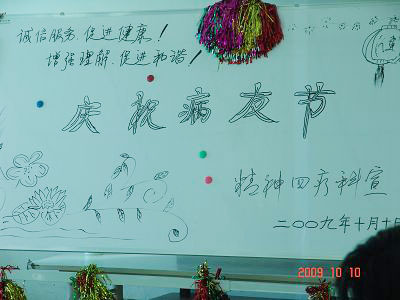 诚信服务,促进健康!
增强理解,促进和谐!
庆祝病友节
精神四疗科宣
二〇〇九年十月十
2009 10 10